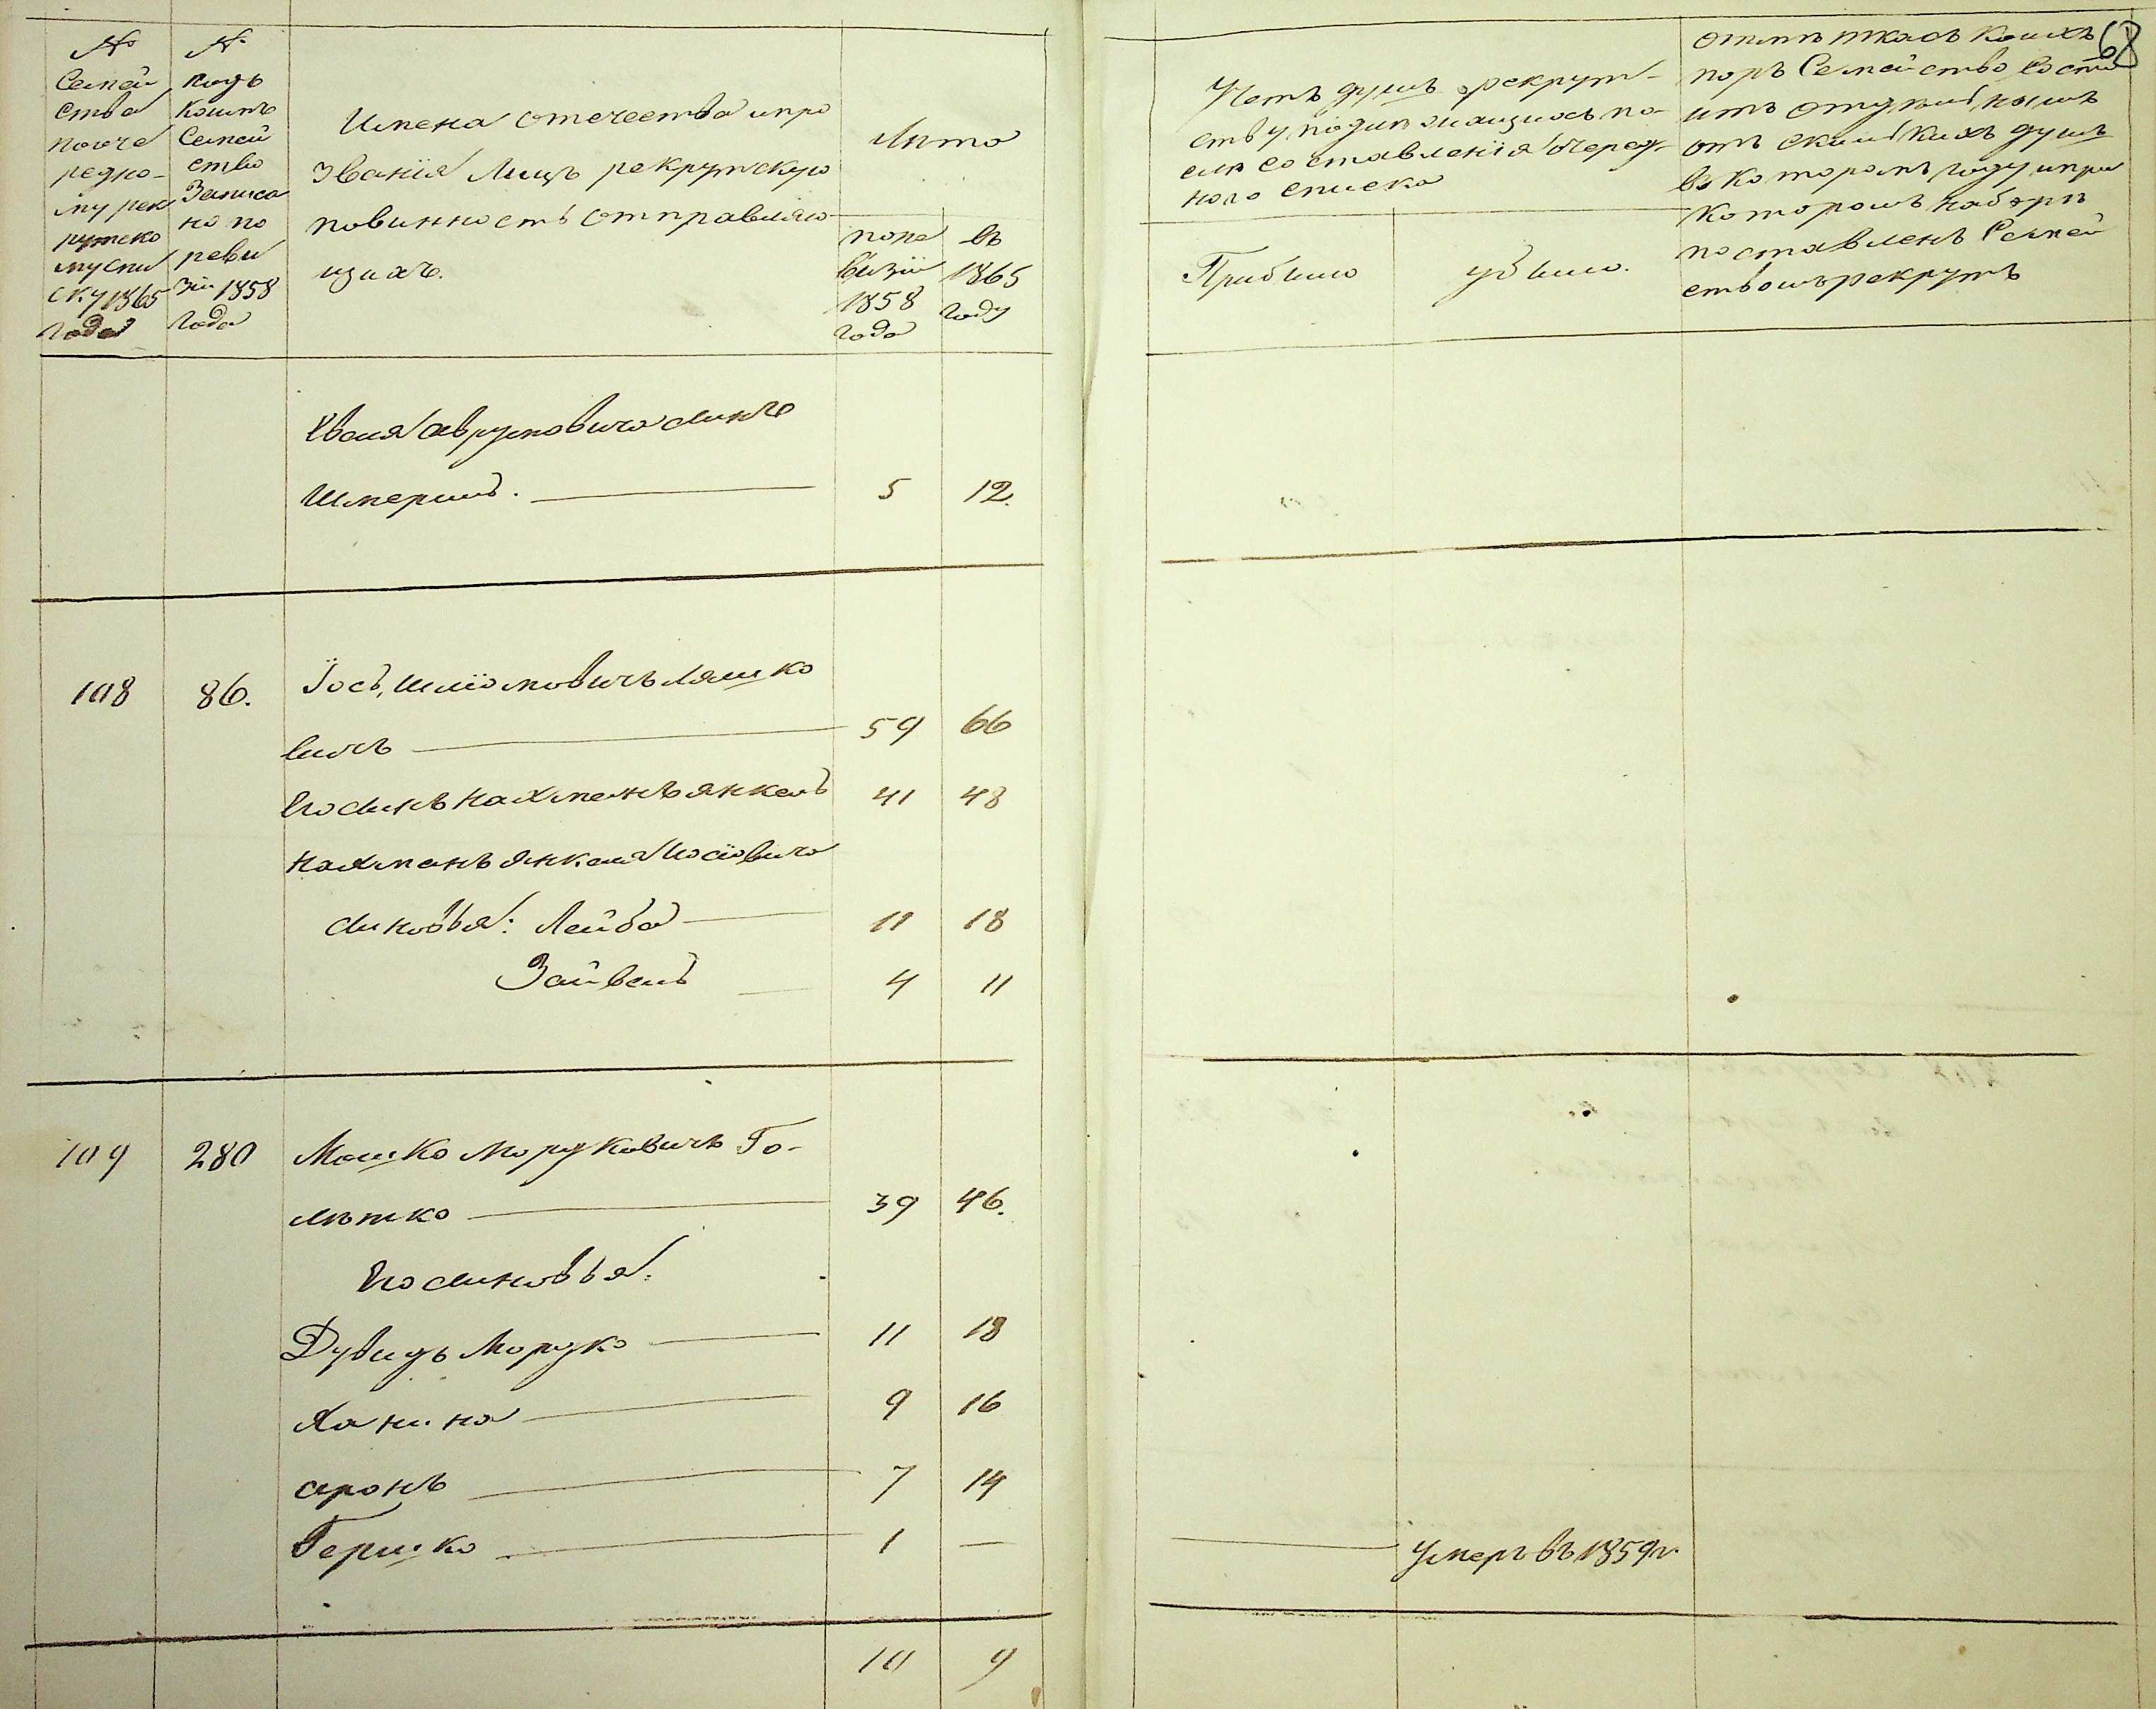 №
Семей
ства
по оче
редно-
му рек
рутско
му спи
ску 1865
года
№
подъ
коимъ
Семей
ство
Записа
но по
реви
зіи 1858
года
Имена отечества и про
званія Лицъ рекрутскую
повинность отправляю
щихъ.
Лѣта
по ре
визіи
1858
года
въ
1865
году
Четъ душъ рекрут-
ству подлежащихъ по-
слѣ составленія очеред-
ного списка
Прибыло
убыло.
68
отмѣтка съ коихъ
поръ Семейство состо
итъ отдѣльнымъ
отъ сколькихъ душъ
въ которомъ году и при
которомъ наборѣ
поставленъ Семей
ствомъ рекрутъ
Евеля Аврумовича сынъ
Шмериль. 5 12.
108 86. Іось, Шліомовичъ Ляшко
вичъ 59 66
Его сынъ Нахманъ Янкель 41 48
Нахманъ Янкеля Іосіовича
сыновья: Лейба 11 18
Зайвель 4 11
109 280 Мошко Мордковичъ Го-
лѣтко 39 46.
Его сыновья:
Дувидъ Мордко 11 18
Ханина 9 16
Аронъ 7 14
Гершко 1 — умеръ въ 1859 г.
10 9